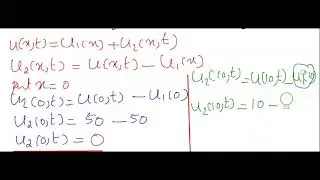 u(x,t)=u₁(x)+u₂(x,t)
u₂(x,t) = u(x,t) - u₁(x)
put x=0
u₂(0,t) = u(0,t) - u₁(0)
u₂(0,t) = 50 - 50
u₂(0,t) = 0
u₂(10,t)=u(10,t)-
u₂(10,t)=10-